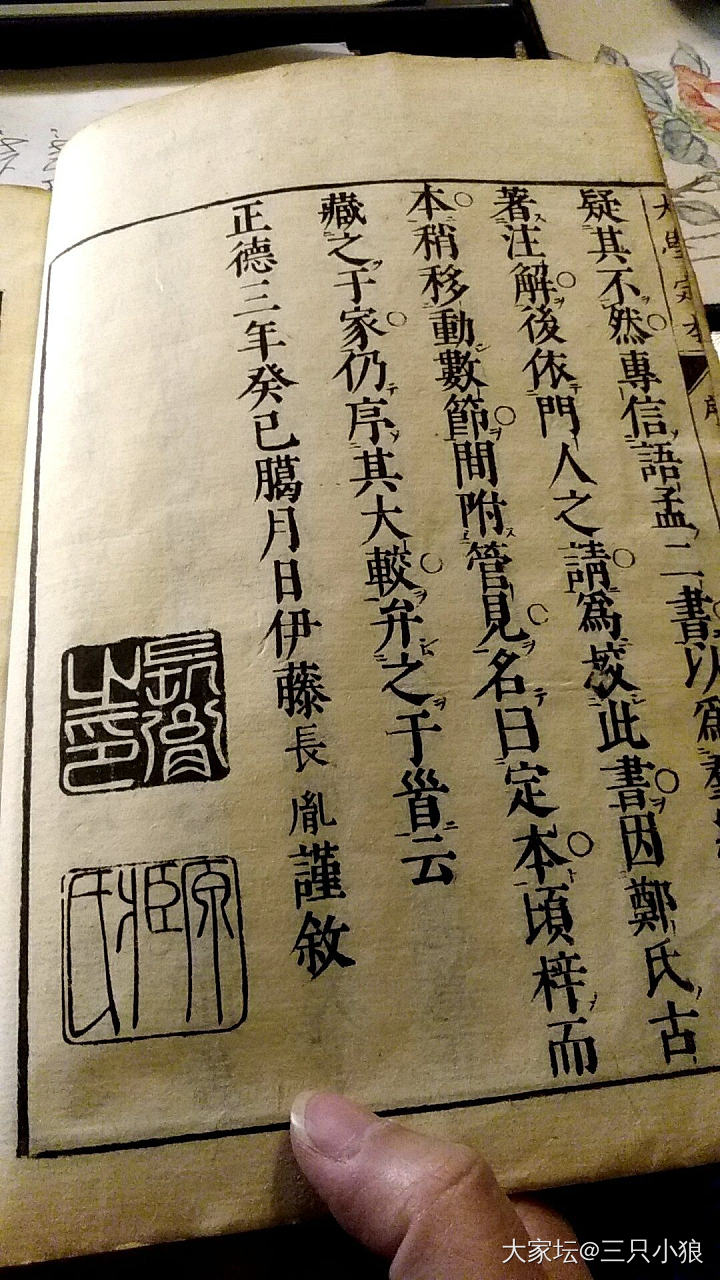 大學定本
疑其不然專信語孟二書以爲
著注解後依門人之請爲挍此書因鄭氏古
本稍移動數節間附管見名曰定本頃梓而
藏之于家仍序其大較弁之于首云
正德三年癸巳臈月日伊藤長胤謹敘
長胤之印
原臧氏
大家坛@三只小狼